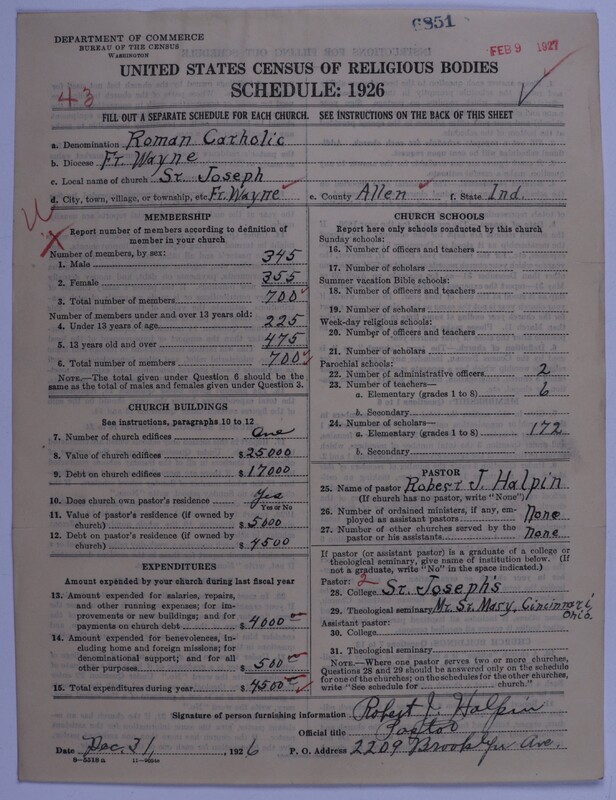 6851
DEPARTMENT OF COMMERCE
BUREAU OF THE CENSUS
WASHINGTON
FEB 9 1927
UNITED STATES CENSUS OF RELIGIOUS BODIES
SCHEDULE: 1926
43
FILL OUT A SEPARATE SCHEDULE FOR EACH CHURCH. SEE INSTRUCTIONS ON THE BACK OF THIS SHEET
a. Denomination Roman Catholic
b. Diocese Ft. Wayne
c. Local name of church St. Joseph
d. City, town, village, or township, etc. Ft. Wayne e. County Allen f. State Ind.
MEMBERSHIP
Report number of members according to definition of
member in your church
Number of members, by sex:
1. Male 345
2. Female 355
3. Total number of members 700
Number of members under and over 13 years old:
4. Under 13 years of age 225
5. 13 years old and over 475
6. Total number of members 700
NOTE.—The total given under Question 6 should be the
same as the total of males and females given under Question 3.
CHURCH BUILDINGS
See instructions, paragraphs 10 to 12
7. Number of church edifices One
8. Value of church edifices $ 25000
9. Debt on church edifices $ 17000
10. Does church own pastor's residence Yes
Yes or No
11. Value of pastor's residence (if owned by
church) $ 5000
12. Debt on pastor's residence (if owned by
church) $ 4500
EXPENDITURES
Amount expended by your church during last fiscal year
13. Amount expended for salaries, repairs,
and other running expenses; for im-
provements or new buildings; and for
payments on church debt $ 4000
14. Amount expended for benevolences, in-
cluding home and foreign missions; for
denominational support; and for all
other purposes $ 500
15. Total expenditures during year $ 4500
CHURCH SCHOOLS
Report here only schools conducted by this church
Sunday schools:
16. Number of officers and teachers
17. Number of scholars
Summer vacation Bible schools:
18. Number of officers and teachers
19. Number of scholars
Week-day religious schools:
20. Number of officers and teachers
21. Number of scholars
Parochial schools:
22. Number of administrative officers 2
23. Number of teachers—
a. Elementary (grades 1 to 8) 6
b. Secondary
24. Number of scholars—
a. Elementary (grades 1 to 8) 172
b. Secondary
PASTOR
25. Name of pastor Robert J. Halpin
(If church has no pastor, write "None")
26. Number of ordained ministers, if any, em-
ployed as assistant pastors None
27. Number of other churches served by the
pastor or his assistants None
If pastor (or assistant pastor) is a graduate of a college or
theological seminary, give name of institution below. (If
not a graduate, write "No" in the space indicated.)
Pastor: 2
28. College St. Joseph's
29. Theological seminary Mt. St. Mary, Cincinnati
Ohio.
Assistant pastor:
30. College
31. Theological seminary
NOTE.—Where one pastor serves two or more churches,
Questions 28 and 29 should be answered only on the schedule
for one of the churches; on the schedules for the other churches,
write "See schedule for church."
Signature of person furnishing information Robert J. Halpin
Official title Pastor
Date Dec. 31, 1926 P. O. Address 2209 Brooklyn Ave.
8—5518 a